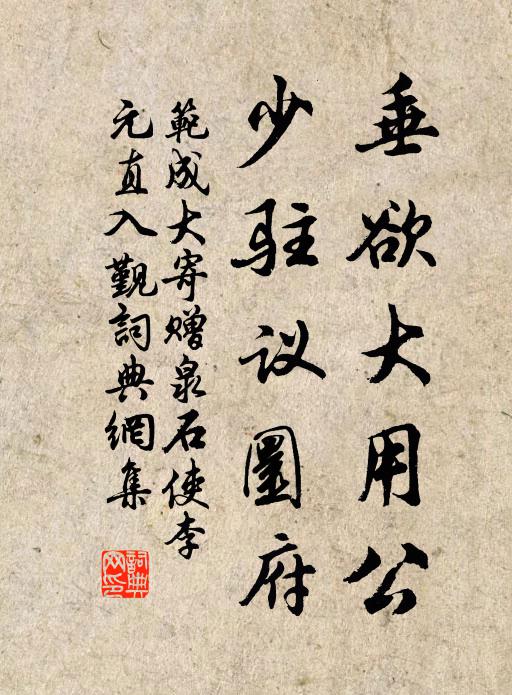 垂欲大用公
少驻议圖府
範成大寄赠泉石使李
元直入觐詞典網集
詞典
网印